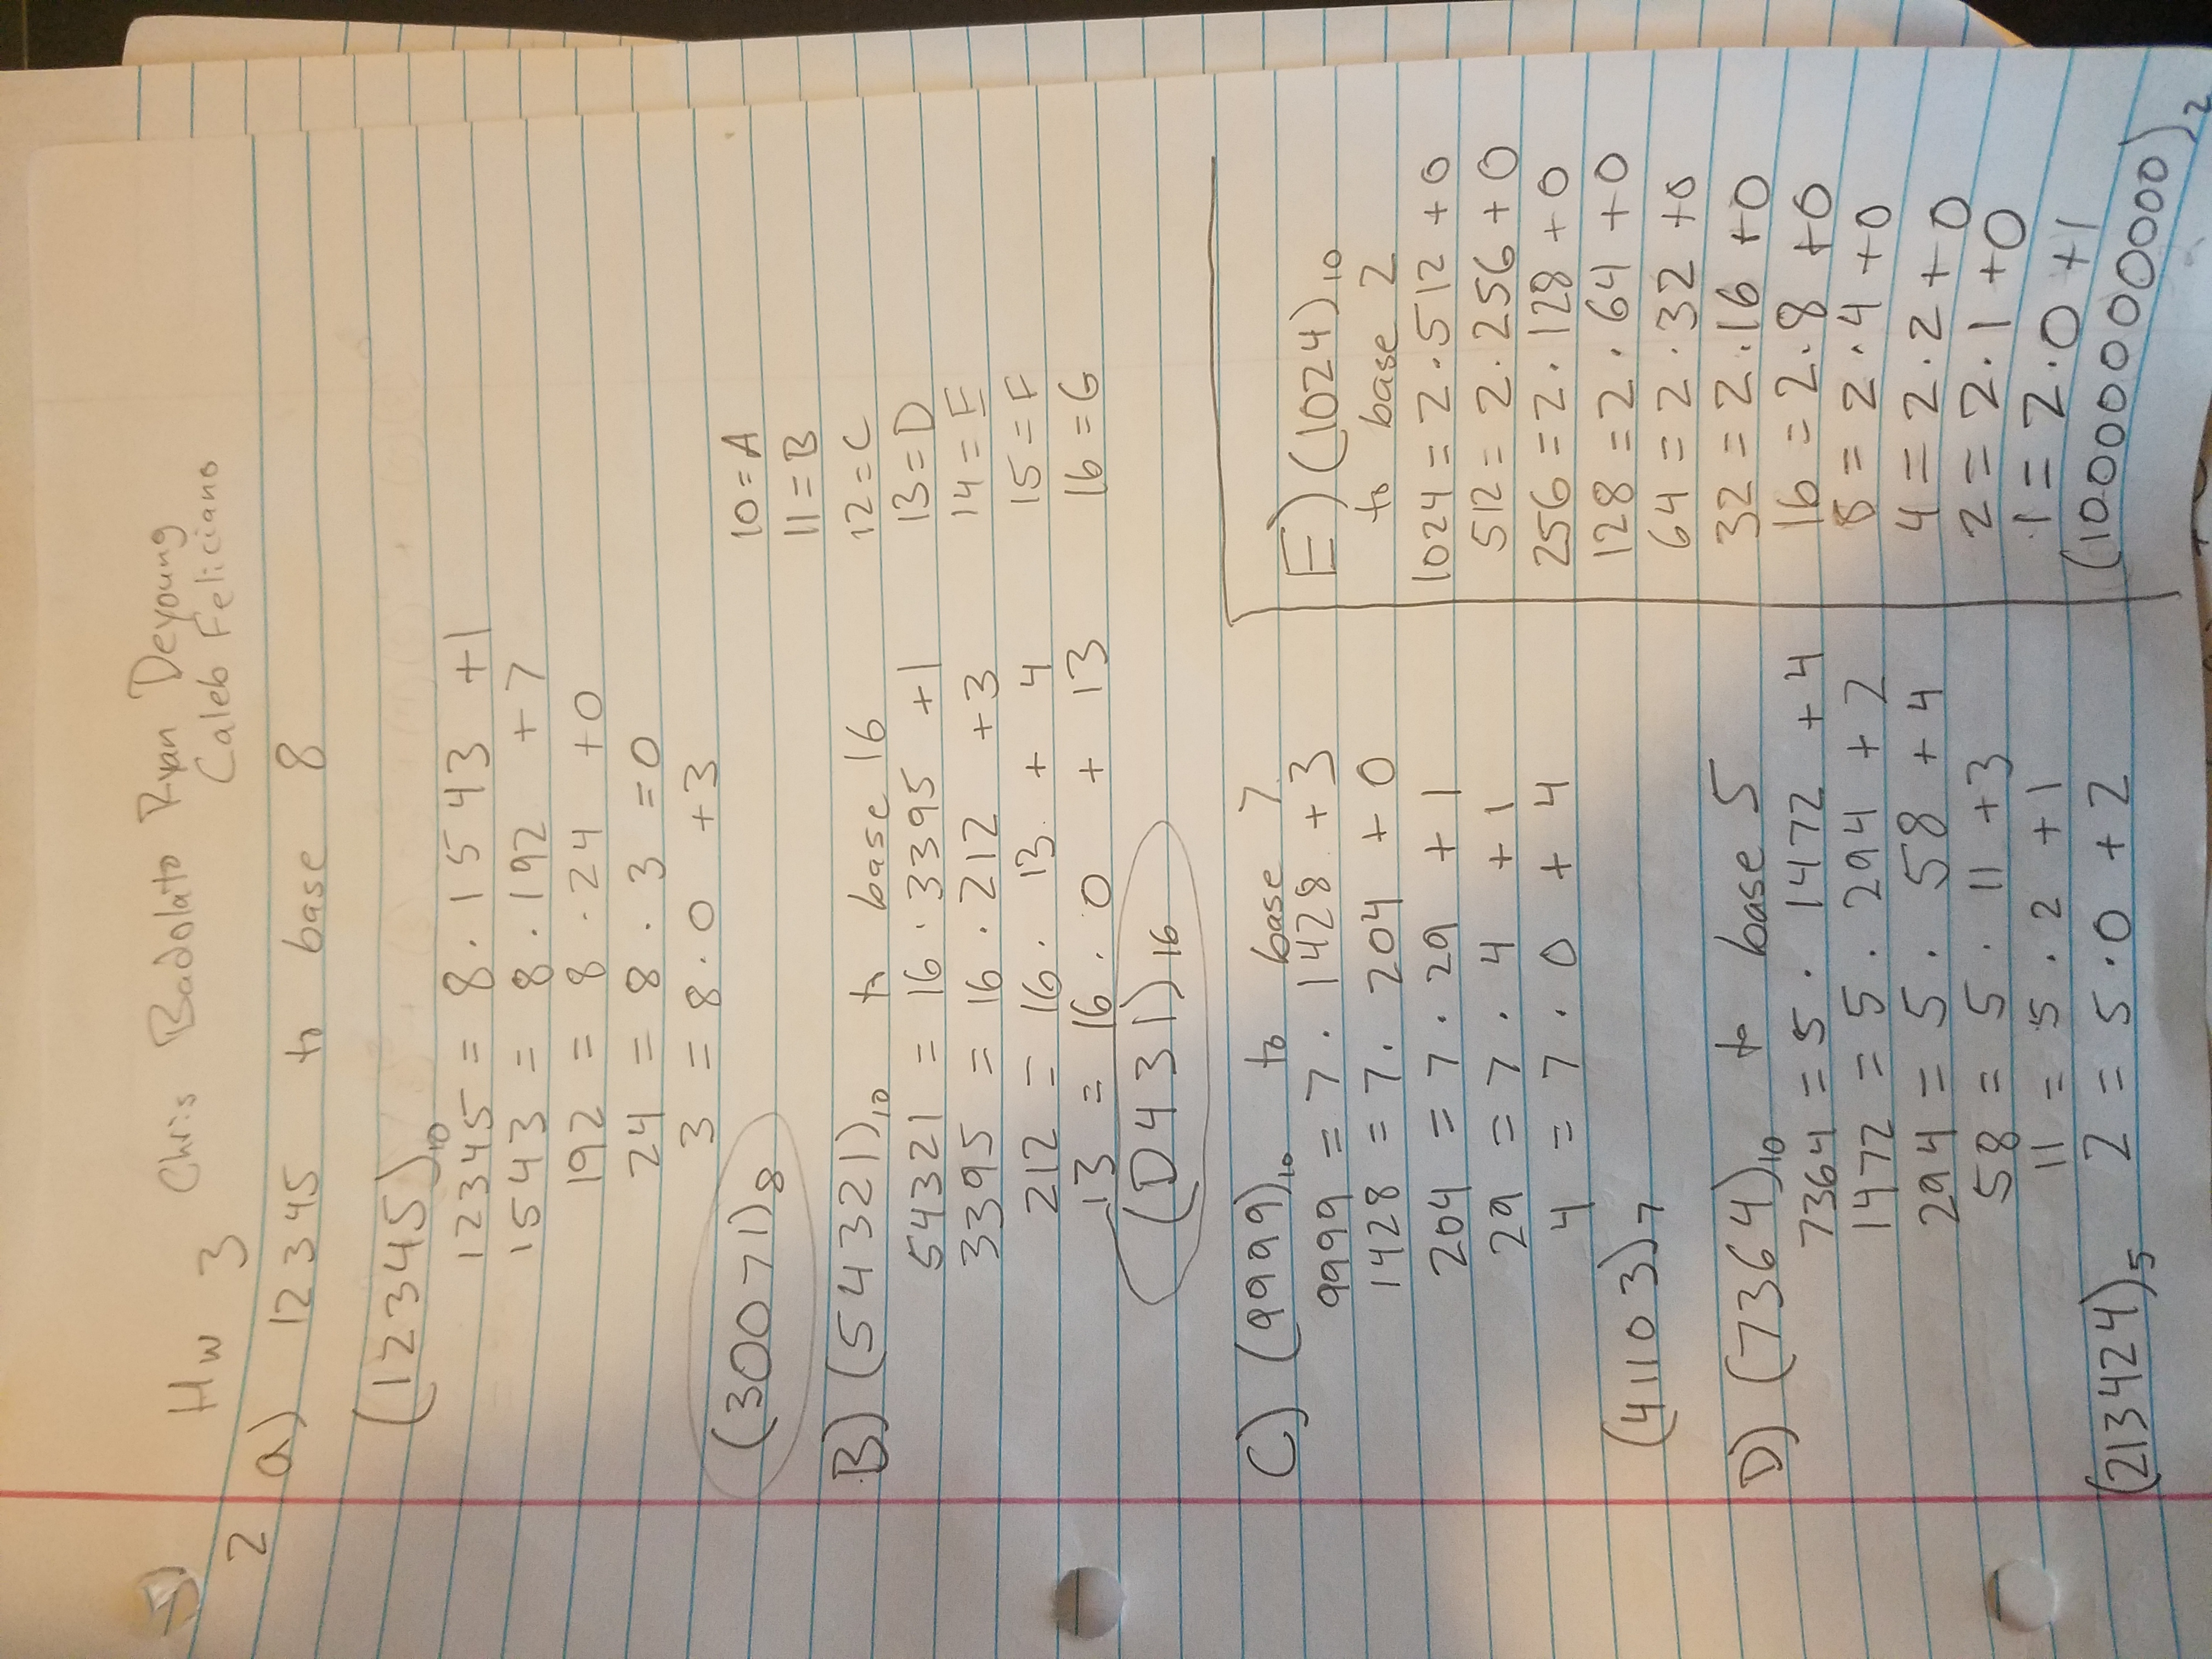 Hw 3 Chris Badolato Ryan Deyoung
Caleb Feliciano
2 a) 12345 to base 8
(12345)10
12345 = 8 · 1543 +1
1543 = 8 · 192 +7
192 = 8 · 24 +0
24 = 8 · 3 =0
3 = 8 · 0 +3
(30071)8
10 = A
11 = B
12 = C
13 = D
14 = E
15 = F
16 = G
B) (54321)10 to base 16
54321 = 16 · 3395 +1
3395 = 16 · 212 +3
212 = 16 · 13 + 4
13 = 16 · 0 + 13
(D431)16
C) (9999)10 to base 7
9999 = 7 · 1428 +3
1428 = 7 · 204 + 0
204 = 7 · 29 + 1
29 = 7 · 4 + 1
4 = 7 · 0 + 4
(41103)7
D) (7364)10 to base 5
7364 = 5 · 1472 + 4
1472 = 5 · 294 + 2
294 = 5 · 58 + 4
58 = 5 · 11 +3
11 = 5 · 2 + 1
2 = 5 · 0 + 2
(213424)5
E) (1024)10
to base 2
1024 = 2 · 512 + 0
512 = 2 · 256 + 0
256 = 2 · 128 + 0
128 = 2 · 64 + 0
64 = 2 · 32 +0
32 = 2 · 16 +0
16 = 2 · 8 +0
8 = 2 · 4 +0
4 = 2 · 2 + 0
2 = 2 · 1 +0
1 = 2 · 0 +1
(10000000000)2